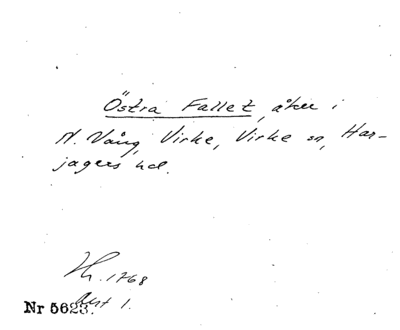 Östra Fallet, åker i
N. Vång, Virke, Virke sn, Har-
jagers hd.
Lh. 1768
Akt 1.
Nr 5623.